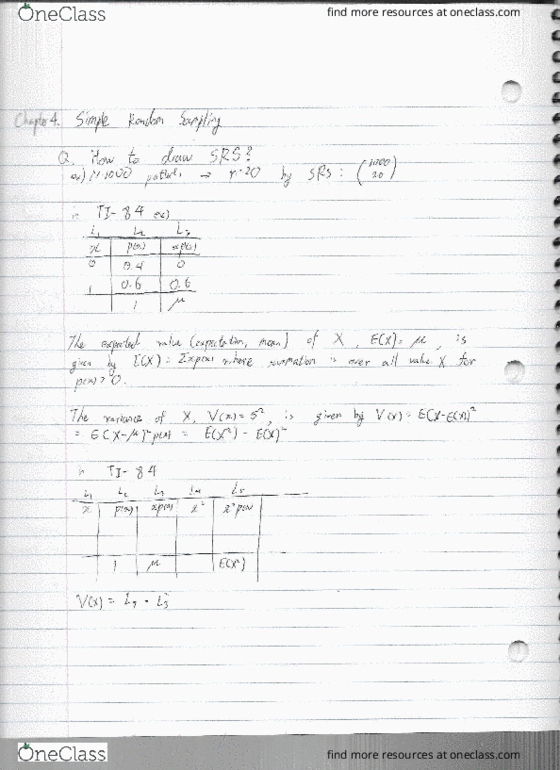 OneClass
find more resources at oneclass.com
Chapter 4. Simple Random Sampling
Q. How to draw SRS?
ex) N=1000 → n=20 by SRS: (1000 20)
TI-84 ex)
L1 L2 L3
x p(x) xp(x)
0 0.4 0
1 0.6 0.6
1 μ
The expected value (expectation, mean) of X, E(X)=μ, is
given by E(X) = Σxp(x) where summation is over all value X for
p(x)>0.
The variance of X, V(x)=σ², is given by V(x)= E(X-E(X))²
= Σ(X-μ)²p(x) = E(X²) - E(X)²
TI-84
L1 L2 L3 L4 L5
x p(x) xp(x) x² x²p(x)
1 μ E(X²)
V(x) = L5 - L3²
OneClass
find more resources at oneclass.com